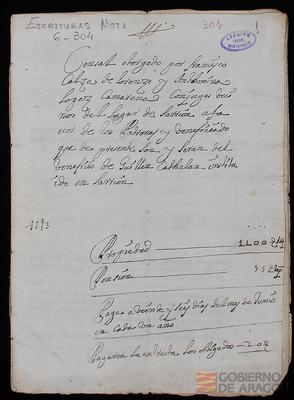 ESCRITURAS NOTA.
6-304
304
1
Censal otorgado por francisco
Calza de Lorenzo y
Lopez Camarena Conjuges veci
nos del Lugar de Sarrion a fa
vor de los Patrones y beneficiado
que de presente son y seran del
beneficio de Guillen Cathalan institu
ido en sarrion
1593
Propiedad
Pension
Paga a veinte y seys dias del mes de Junio
en cada un año
Pagaron la entrada los obligados
GOBIERNO
DE ARAGON